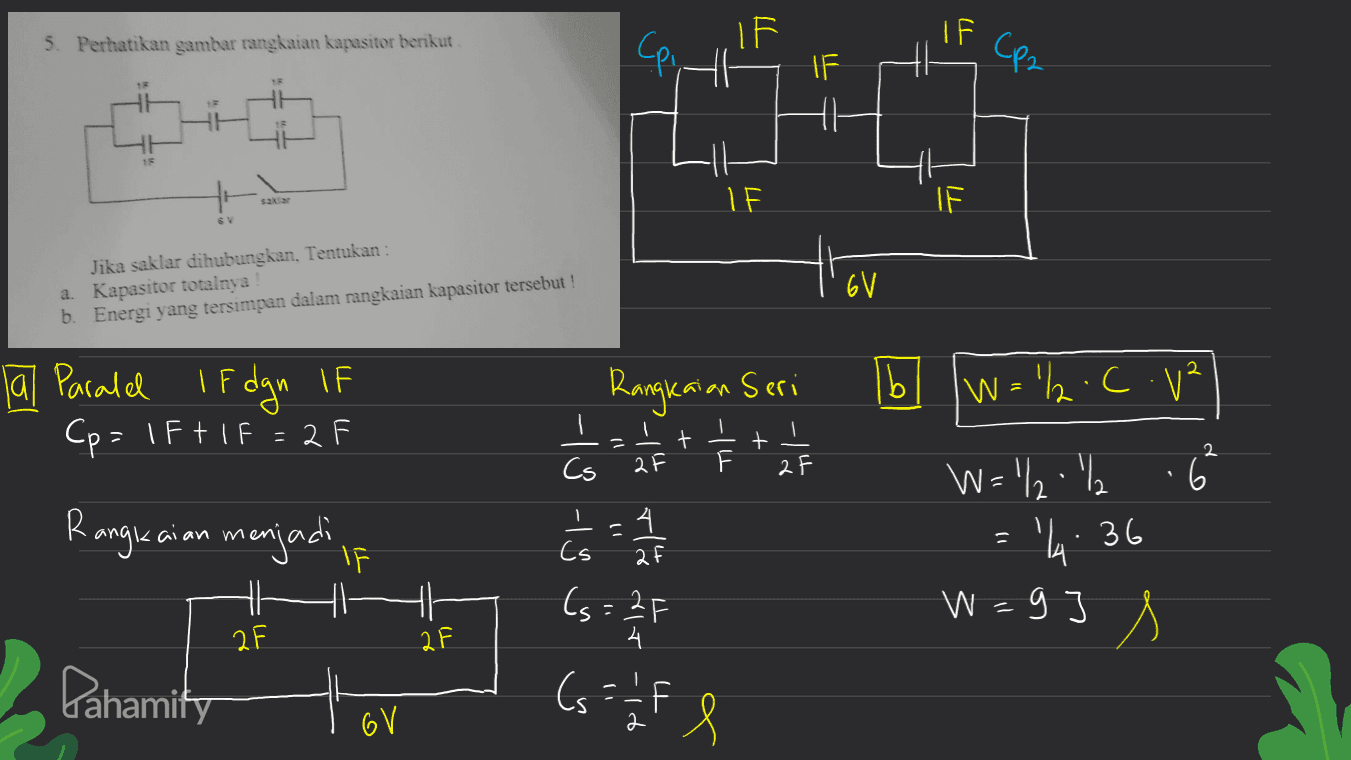 5. Perhatikan gambar rangkaian kapasitor berikut.
1F
1F
1F
1F
1F
saklar
6 V
Jika saklar dihubungkan, Tentukan :
a. Kapasitor totalnya !
b. Energi yang tersimpan dalam rangkaian kapasitor tersebut !
Cp1
1F
1F
1F
Cp2
1F
1F
6V
a Paralel 1F dgn 1F
Cp = 1F + 1F = 2F
Rangkaian menjadi
1F
2F
2F
6V
Rangkaian Seri
1/Cs = 1/2F + 1/F + 1/2F
1/Cs = 4/2F
Cs = 2/4 F
Cs = 1/2 F
b W = 1/2 · C · V²
W = 1/2 · 1/2 · 6²
= 1/4 · 36
W = 9 J
Pahamify